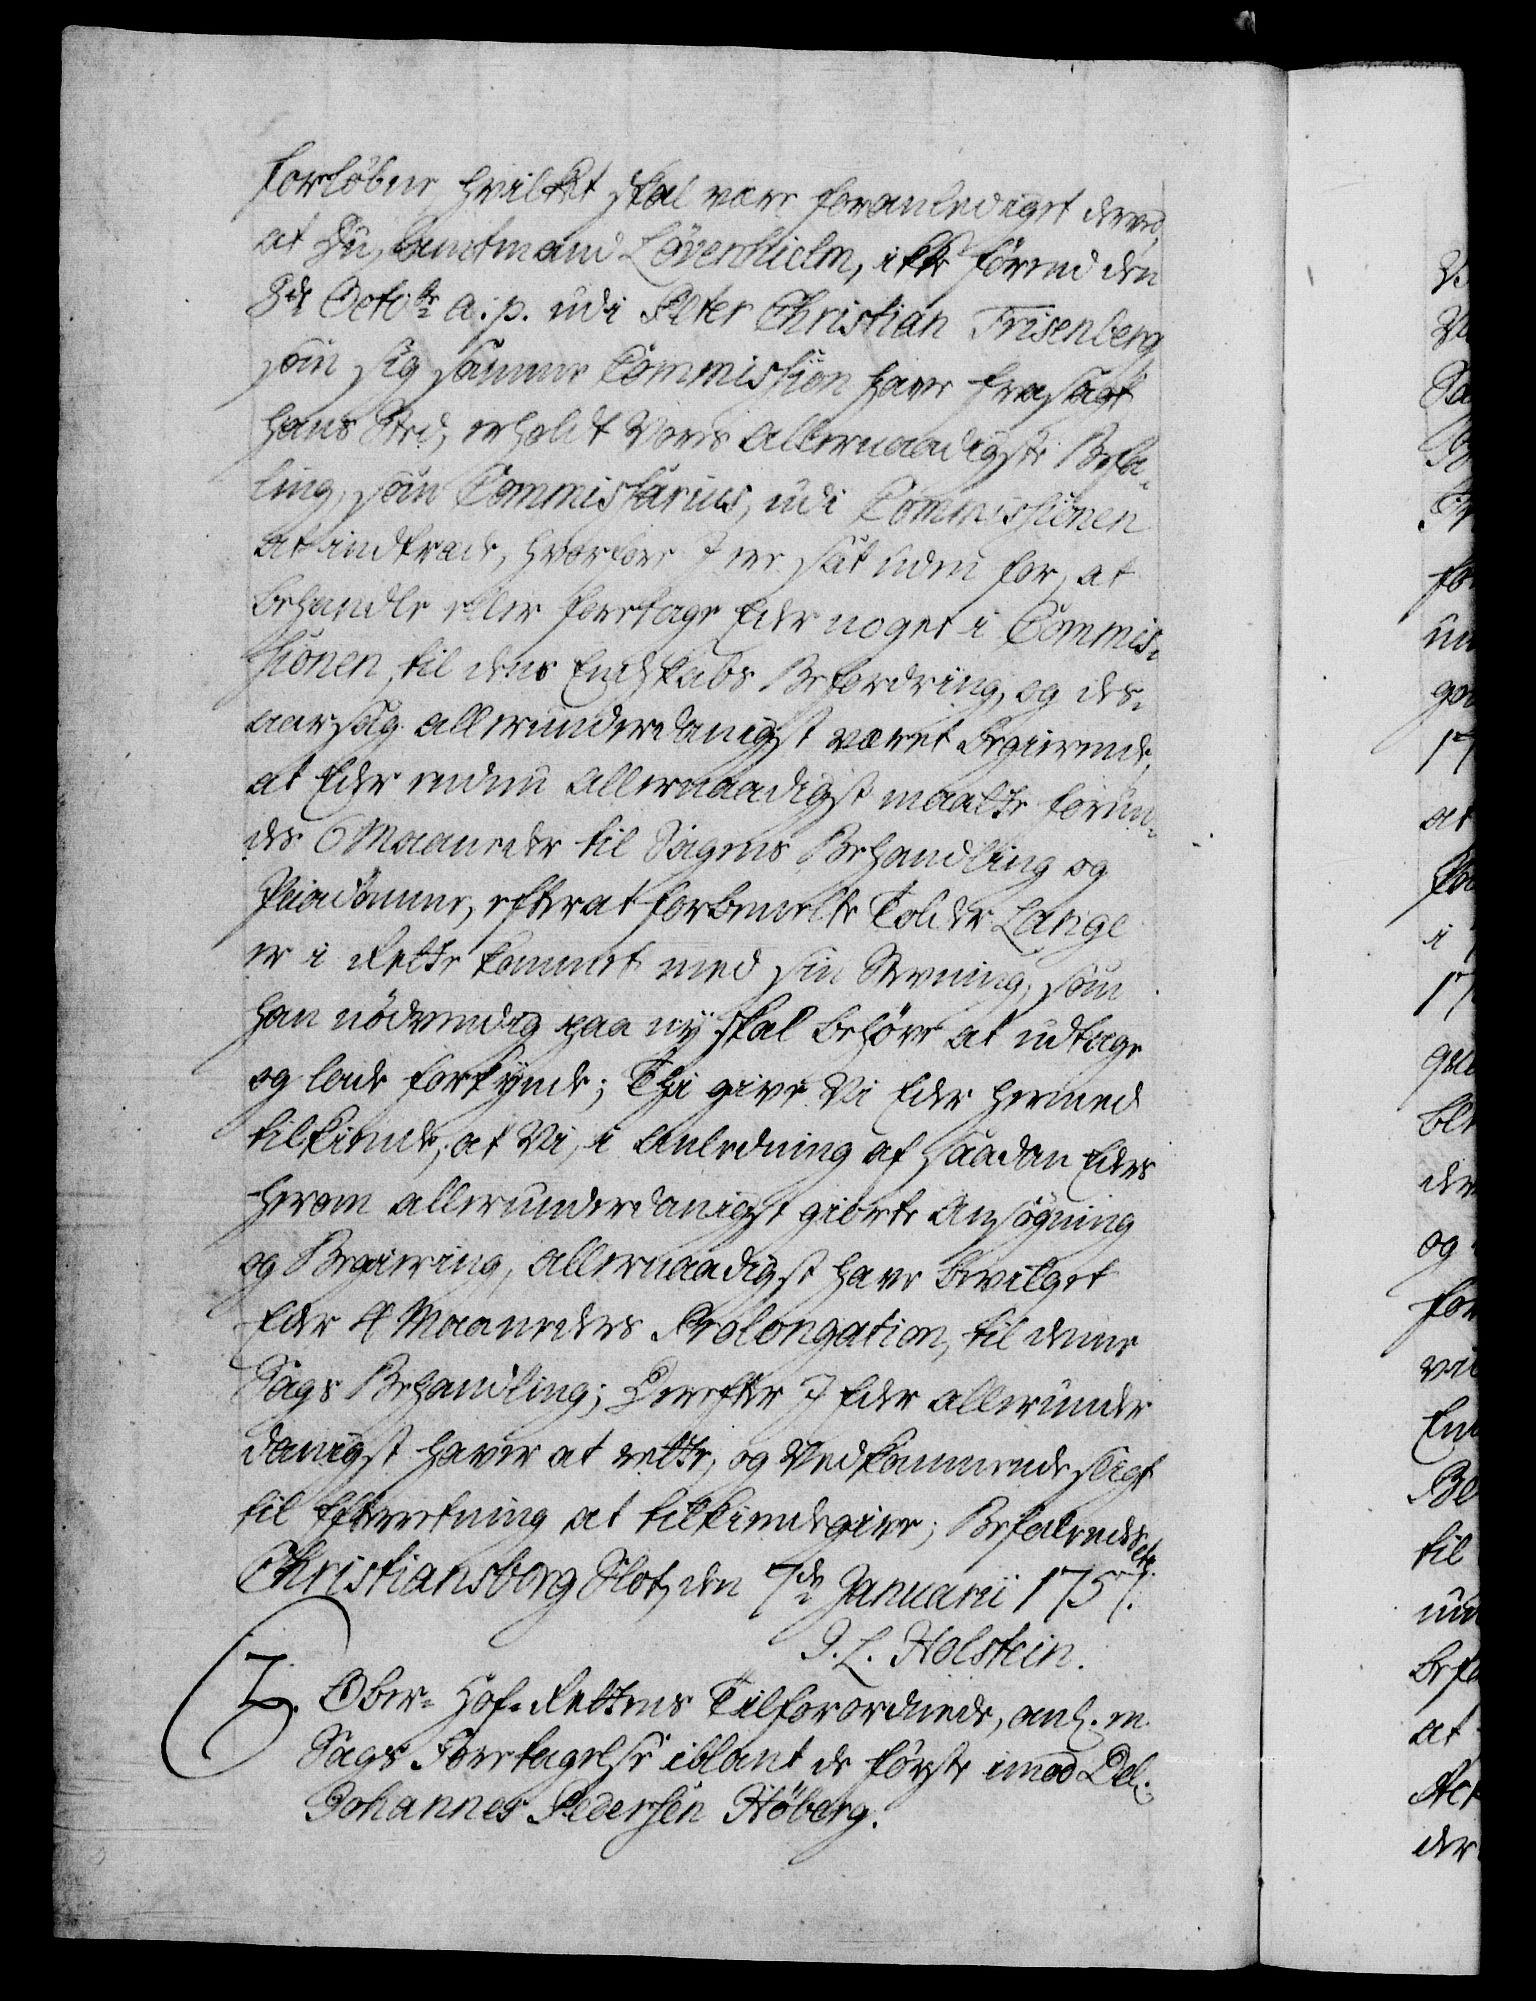 forløbne, hvilket skal være foranlediget derved,
at Du, Amtmand Lövenhielm, ikke förend den
8de Octobr a. p. udi Peter Christian Frisenberg,
som sig samme Commission haver frasagt
hans Sted, erholdt Vores allernaadigste Befa-
ling, som Commissarius, udi Commissionen
at indtræde, hvorfore I ere sat uden for, at
behandle eller foretage Eder noget i Commis-
sionen, til dens Endskabs Befordring, og des-
aarsag allerunderdanigst været begierende,
at Eder endnu allernaadigst maatte forun-
des 6 Maaneder til Sagens Behandling og
Paadömme, efterat forbemelte Tolder Lange
er i Rette kommet med sin Stevning, som
han nödvendig paa ny skal behöve at udtage
og lade forkynde; Thi give Vi Eder hermed
tilkiende, at Vi, i Anledning af saadan Eders
herom allerunderdanigst giorte Ansögning
og Begiering, allernaadigst have bevilget
Eder 4 Maaneders Prolongation, til denne
Sags Behandling; Derefter I Eder allerunder
danigst haver at rette, og Vedkommende sligt
til Efterretning at tilkiendegive; Befalendes etc.
Christiansborg Slot, den 7de Januarii 1757.
J. L. Holstein.
7. Ober-Hof-Rettens Tilforordnede, anl. en
Sags Foretagelse iblant de förste imod Del:
Johannes Pedersen Höberg.